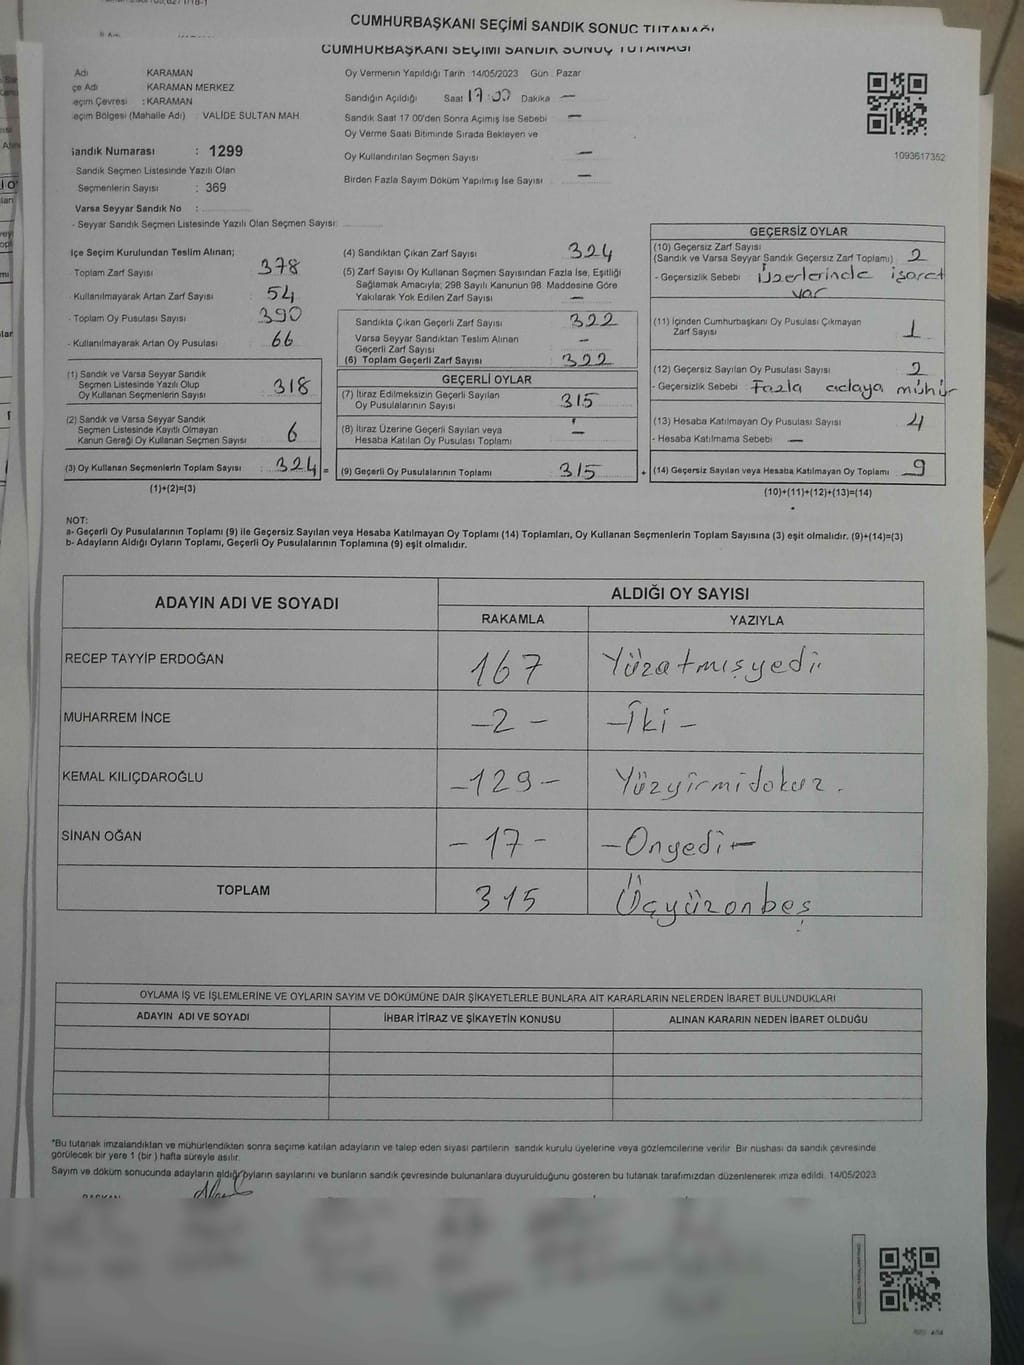 CUMHURBAŞKANI SEÇİMİ SANDIK SONUÇ TUTANAĞI
CUMHURBAŞKANI SEÇİMİ SANDIK SONUÇ TUTANAĞI
Adı KARAMAN
çe Adı KARAMAN MERKEZ
eçim Çevresi : KARAMAN
eçim Bölgesi (Mahalle Adı) : VALİDE SULTAN MAH
Sandık Numarası : 1299
Sandık Seçmen Listesinde Yazılı Olan
Seçmenlerin Sayısı : 369
Varsa Seyyar Sandık No :
- Seyyar Sandık Seçmen Listesinde Yazılı Olan Seçmen Sayısı
Oy Vermenin Yapıldığı Tarih 14/05/2023 Gün . Pazar
Sandığın Açıldığı Saat 17:00 Dakika —
Sandık Saat 17 00'den Sonra Açımış İse Sebebi —
Oy Verme Saati Bitiminde Sırada Bekleyen ve
Oy Kullandırılan Seçmen Sayısı —
Birden Fazla Sayım Döküm Yapılmış İse Sayısı —
1093617352
İlçe Seçim Kurulundan Teslim Alınan;
Toplam Zarf Sayısı 378
- Kullanılmayarak Artan Zarf Sayısı 54
- Toplam Oy Pusulası Sayısı 390
- Kullanılmayarak Artan Oy Pusulası 66
(1) Sandık ve Varsa Seyyar Sandık
Seçmen Listesinde Yazılı Olup
Oy Kullanan Seçmenlerin Sayısı 318
(2) Sandık ve Varsa Seyyar Sandık
Seçmen Listesinde Kayıtlı Olmayan
Kanun Gereği Oy Kullanan Seçmen Sayısı 6
(3) Oy Kullanan Seçmenlerin Toplam Sayısı 324 =
(1)+(2)=(3)
(4) Sandıktan Çıkan Zarf Sayısı 324
(5) Zarf Sayısı Oy Kullanan Seçmen Sayısından Fazla İse, Eşitliği
Sağlamak Amacıyla; 298 Sayılı Kanunun 98. Maddesine Göre
Yakılarak Yok Edilen Zarf Sayısı —
Sandıkta Çıkan Geçerli Zarf Sayısı 322
Varsa Seyyar Sandıktan Teslim Alınan
Geçerli Zarf Sayısı —
(6) Toplam Geçerli Zarf Sayısı 322
GEÇERLİ OYLAR
(7) İtiraz Edilmeksizin Geçerli Sayılan
Oy Pusulalarının Sayısı 315
(8) İtiraz Üzerine Geçerli Sayılan veya
Hesaba Katılan Oy Pusulası Toplamı —
(9) Geçerli Oy Pusulalarının Toplamı 315 +
GEÇERSİZ OYLAR
(10) Geçersiz Zarf Sayısı
(Sandık ve Varsa Seyyar Sandık Geçersiz Zarf Toplamı) 2
- Geçersizlik Sebebi Üzerlerinde işaret
var
(11) İçinden Cumhurbaşkanı Oy Pusulası Çıkmayan
Zarf Sayısı 1
(12) Geçersiz Sayılan Oy Pusulası Sayısı 2
- Geçersizlik Sebebi Fazla adaya mühür
(13) Hesaba Katılmayan Oy Pusulası Sayısı 4
- Hesaba Katılmama Sebebi —
(14) Geçersiz Sayılan veya Hesaba Katılmayan Oy Toplamı 9
(10)+(11)+(12)+(13)=(14)
NOT:
a- Geçerli Oy Pusulalarının Toplamı (9) ile Geçersiz Sayılan veya Hesaba Katılmayan Oy Toplamı (14) Toplamları, Oy Kullanan Seçmenlerin Toplam Sayısına (3) eşit olmalıdır. (9)+(14)=(3)
b- Adayların Aldığı Oyların Toplamı, Geçerli Oy Pusulalarının Toplamına (9) eşit olmalıdır.
ADAYIN ADI VE SOYADI ALDIĞI OY SAYISI
RAKAMLA YAZIYLA
RECEP TAYYİP ERDOĞAN 167 Yüzatmışyedi
MUHARREM İNCE -2- -İki-
KEMAL KILIÇDAROĞLU -129- Yüzyirmidokuz.
SİNAN OĞAN -17- -Onyedi-
TOPLAM 315 Üçyüzonbeş
OYLAMA İŞ VE İŞLEMLERİNE VE OYLARIN SAYIM VE DÖKÜMÜNE DAİR ŞİKAYETLERLE BUNLARA AİT KARARLARIN NELERDEN İBARET BULUNDUKLARI
ADAYIN ADI VE SOYADI İHBAR İTİRAZ VE ŞİKAYETİN KONUSU ALINAN KARARIN NEDEN İBARET OLDUĞU
*Bu tutanak imzalandıktan ve mühürlendikten sonra seçime katılan adayların ve talep eden siyasi partilerin sandık kurulu üyelerine veya gözlemcilerine verilir. Bir nüshası da sandık çevresinde
görülecek bir yere 1 (bir) hafta süreyle asılır.
Sayım ve döküm sonucunda adayların aldığı oyların sayılarını ve bunların sandık çevresinde bulunanlara duyurulduğunu gösteren bu tutanak tarafımızdan düzenlenerek imza edildi. 14/05/2023
BAŞKAN